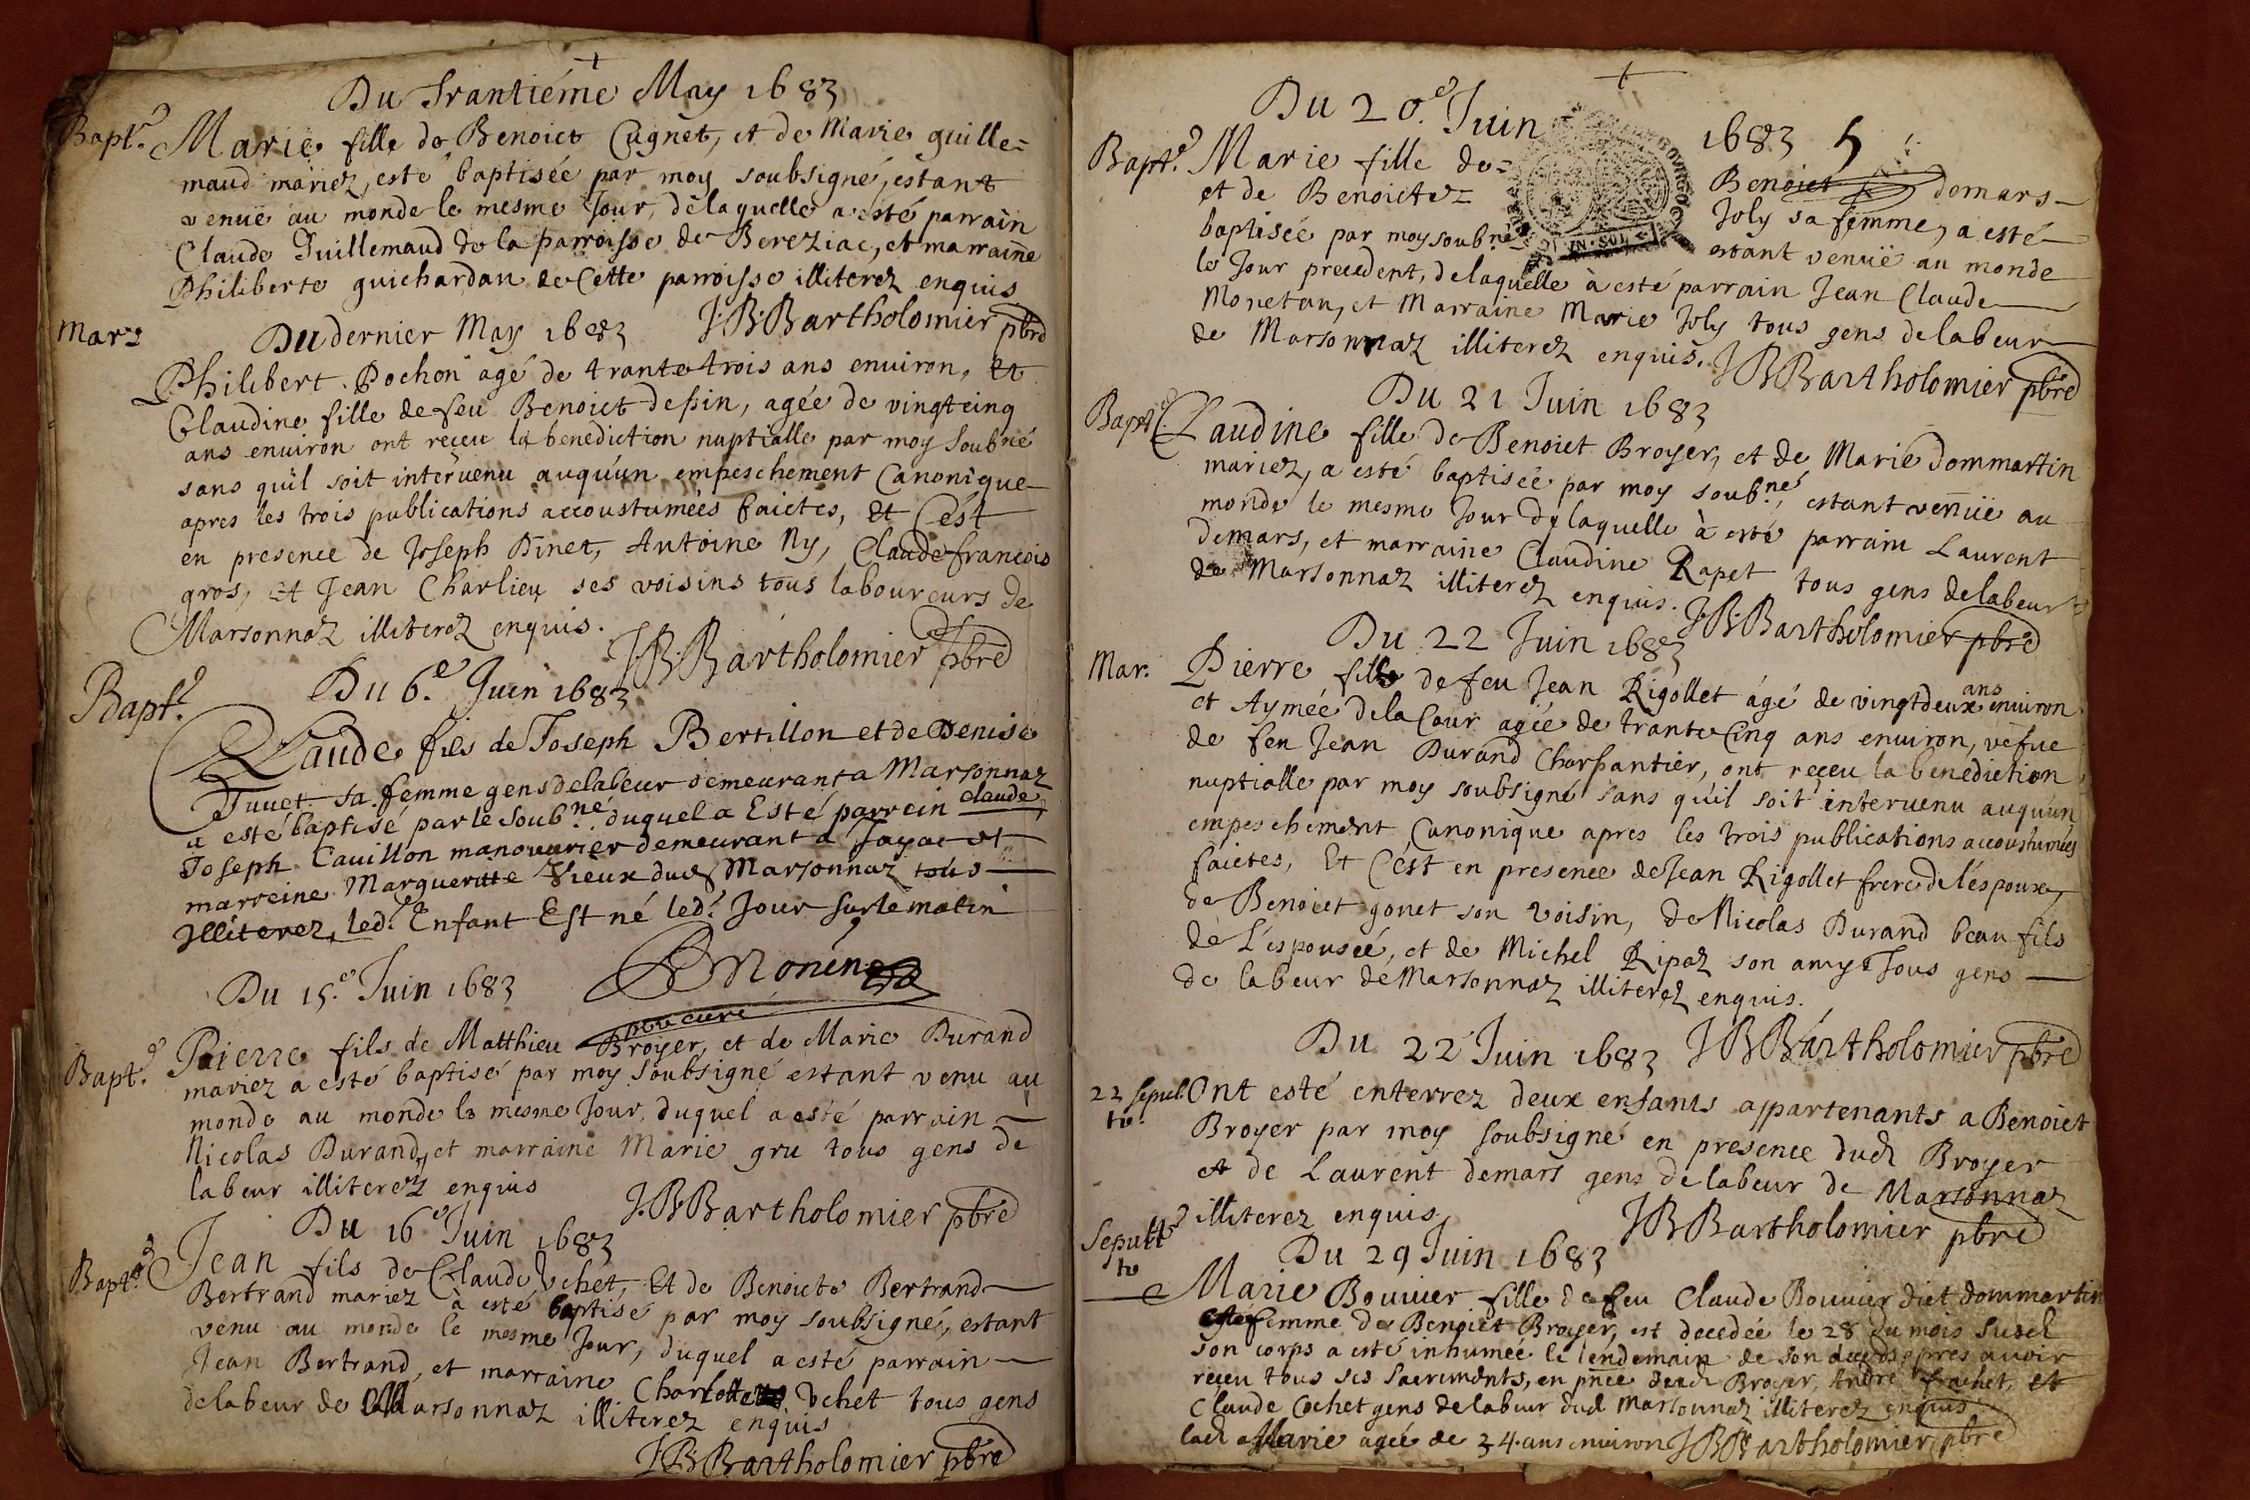 Du trantiéme May 1683
Bapt.e Marie fille de Benoict Cugnet, et de Marie guille=
maud mariez, esté baptisée par moy soubsigné, estant
venuë au monde le mesme Jour, de laquelle a esté parrain
Claude Guillemaud de la parroisse de Bereziac, et marraine
Philiberte guichardan de Cette parroisse illiterez enquis
J.B.Bartholomier pbre
Mar. Du dernier May 1683
Philibert Pochon agé de trante trois ans environ, Et
Claudine fille de feu Benoict depin, agée de vingtcinq
ans environ ont reçeu la benediction nuptialle par moy soubné
sans qu'il soit interuenu auqu'un empeschement Canonique
apres les trois publications accoustumées faictes, Et C'est
en presence de Joseph Pinet, Antoine Ny, Claude francois
gros, Et Jean Charlieu ses voisins tous laboureurs de
Marsonnaz illiterez enquis.
J.B.Bartholomier pbre
Du 6.e Juin 1683
Bapt.e Claude fils de Joseph Bertillon et de Denise
Tuuet sa femme gens de labeur demeurant a Marsonnaz
a esté baptisé par le soub.né duquel a Esté parrein claude
Joseph Cauillon manouurier demeurant a Jayac et
marreine Margueritte Vieux dud Marsonnaz tous
Illiterez, led.t Enfant Est né led.t Jour sur le matin
Monin
pbre curé
Du 15.e Juin 1683
Bapt.e Pierre fils de Matthieu Broyer, et de Marie Durand
mariez a esté baptisé par moy soubsigné estant venu au
monde au monde le mesme Jour, duquel a esté parrain
Nicolas Durand, et marraine Marie gru tous gens de
labeur illiterez enquis
J.B.Bartholomier pbre
Du 16.e Juin 1683
Bapt.e Jean fils de Claude Vchet, Et de Benoicte Bertrand
Bertrand mariez à esté baptisé par moy soubsigné, estant
venu au monde le mesme Jour, duquel a esté parrain
Jean Bertrand, et marraine Charlotte Vchet tous gens
de labeur de Marsonnaz illiterez enquis
J.B.Bartholomier pbre
Du 20.e Juin 1683 5
Bapt.e Marie fille de= Benoict demars
et de Benoicte= Joly sa femme, a esté
baptisée par moy soubné estant venuë au monde
le Jour precedent, de laquelle à esté parrain Jean Claude
Monetan, et Marraine Marie Joly tous gens de labeur
de Marsonnaz illiterez enquis.
J.B.Bartholomier pbre
Du 21 Juin 1683
Bapt.e Claudine fille de Benoict Broyer, et de Marie dommartin
mariez, a esté baptisée par moy soub.né, estant venuë au
monde le mesme Jour de laquelle à esté parrain Laurent
Demars, et marraine Claudine Rapet tous gens de labeur
de Marsonnaz illiterez enquis.
J.B.Bartholomier pbre
Du 22 Juin 1683
Mar. Pierre fils de feu Jean Rigollet ágé de vingtdeux ans environ
et Aymée de la Cour agée de trante Cinq ans environ, vefue
de feu Jean Durand Charpantier, ont reçeu la benediction
nuptialle par moy soubsigné sans qu'il soit interuenu auqu'un
empeschement Canonique apres les trois publications accoustumées
faictes, Et C'est en presence de Jean Rigollet frere de l'espoux,
de Benoict gonet son voisin, de Nicolas Durand beau fils
de L'espousée, et de Michel Ripaz son amy Tous gens
de labeur de Marsonnaz illiterez enquis.
J.B.Bartholomier pbre
Du 22 Juin 1683
22 sepul tu. Ont esté enterrez deux enfants appartenants a Benoict
Broyer par moy soubsigné en presence dud Broyer
et de Laurent demars gens de labeur de Marsonnaz
illiterez enquis
J.B.Bartholomier pbre
Du 29 Juin 1683
Marie Bouuier fille de feu Claude Bouuier dict dommartin
femme de Benoict Broyer, est decedée le 28 du mois susd
son corps a esté inhumée le lendemain de son deceds apres auoir
reçeu tous ses sacrements, en pnce dud Broyer, André et
Claude Cochet gens de labeur dud Marsonnaz illiterez enquis
lad Marie agée de 34 ans environ J.B.Bartholomier pbre